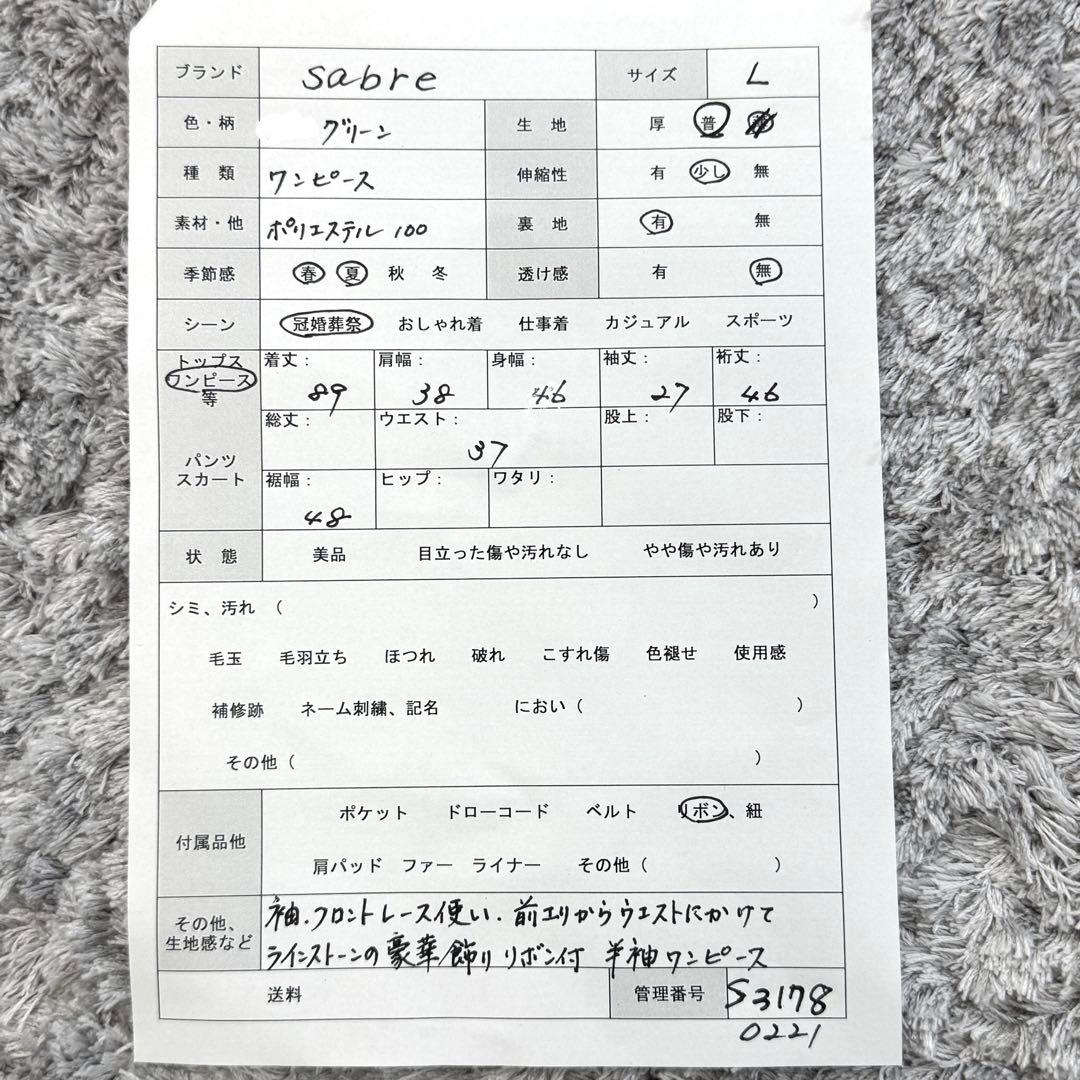 ブランド sabre サイズ L
色・柄 グリーン 生 地 厚 普
種 類 ワンピース 伸縮性 有 少し 無
素材・他 ポリエステル 100 裏 地 有 無
季節感 春 夏 秋 冬 透け感 有 無
シーン 冠婚葬祭 おしゃれ着 仕事着 カジュアル スポーツ
トップス
ワンピース
等
着丈： 肩幅： 身幅： 袖丈： 裄丈：
89 38 46 27 46
パンツ
スカート
総丈： ウエスト： 股上： 股下：
37
裾幅： ヒップ： ワタリ：
48
状 態 美品 目立った傷や汚れなし やや傷や汚れあり
シミ、汚れ （ ）
毛玉 毛羽立ち ほつれ 破れ こすれ傷 色褪せ 使用感
補修跡 ネーム刺繍、記名 におい（ ）
その他（ ）
付属品他
ポケット ドローコード ベルト リボン、紐
肩パッド ファー ライナー その他（ ）
その他、
生地感など
袖.フロントレース使い.前エリからウエストにかけて
ラインストーンの豪華飾りリボン付 半袖ワンピース
送料 管理番号 S3178
0221